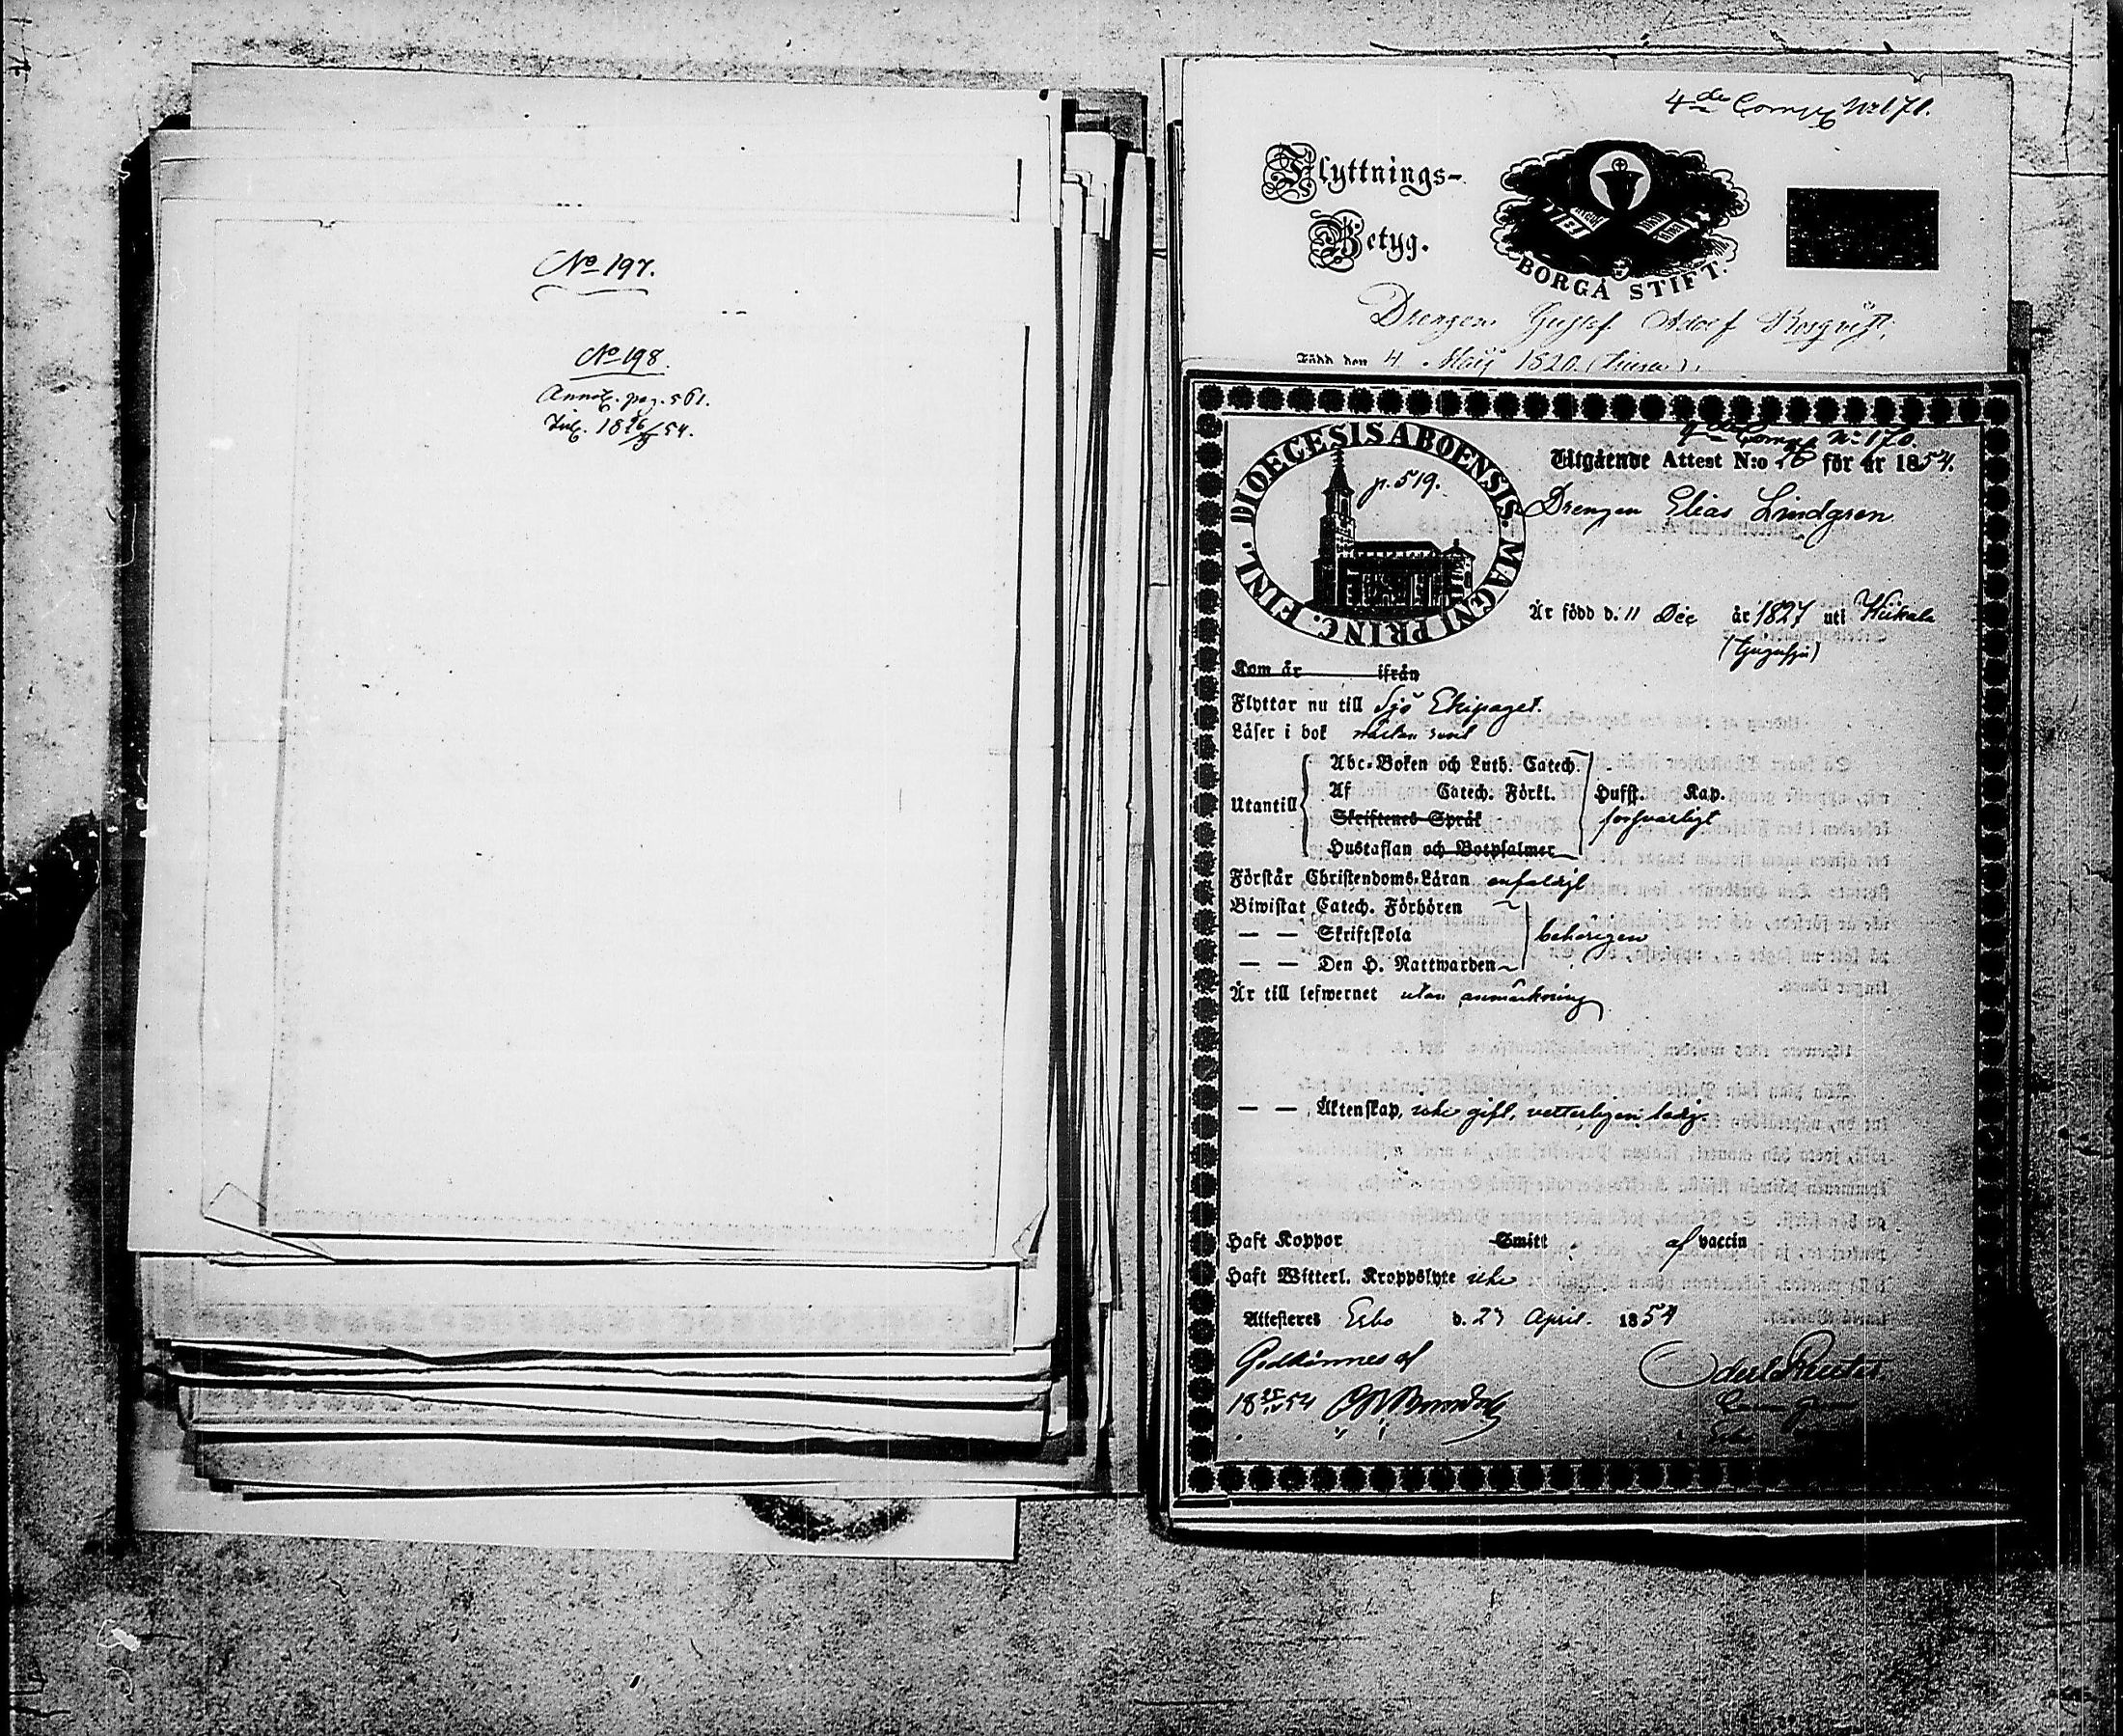 No 197.
No 198.
Annot. pag. 561.
Ink. 18 16/5 54.
4de Comp No 171.
Flyttnings-
Betyg.
BORGÅ STIFT.
Drengen Gustaf Adolf Rosqvist,
Född den 4 Maij 1820.
DIOECESIS ABOENSIS. MAGNI PRINC. FINL.
p. 519.
4de Comp No 170.
Utgående Attest N:o 26 för år 1854.
Drengen Elias Lindgren
Är född d. 11 Dec år 1827 uti Kiikala
(tjugusju)
Kom år ifrån
Flyttar nu till Sjö Ekipaget.
Läser i bok nästan svml
Utantill
Abc-Boken och Luth. Catech.
Af Catech. Förkl.
Skriftenes Språk
Hustaflan och Botpsalmer
Hufst. Kap.
försvarligt
Förstår Christendoms-Läran enfaldigt
Biwistat Catech. Förhören
— — Skriftskola
— — Den H. Nattwarden
behörigen
Är till lefwernet utan anmärkning
— — Äktenskap, icke gift, vetterligen ledig.
Haft Koppor Smitt af vaccin
Haft Witterl. Kroppslyte icke
Attesteres Esbo d. 23 April. 1854
Godkännes af
18 25/IV 54